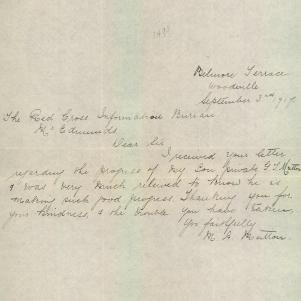 Belmore Terrace
Woodville
September 3rd 1917
The Red Cross Information Bureau
Mr Edmunds
Dear Sir
I received your letter
regarding the progress of my Son Private G. J. Mutton
& was very much relieved to know he is
making such good progress. Thanking you for
your kindness, & the trouble you have taken
You faithfully
M A Mutton